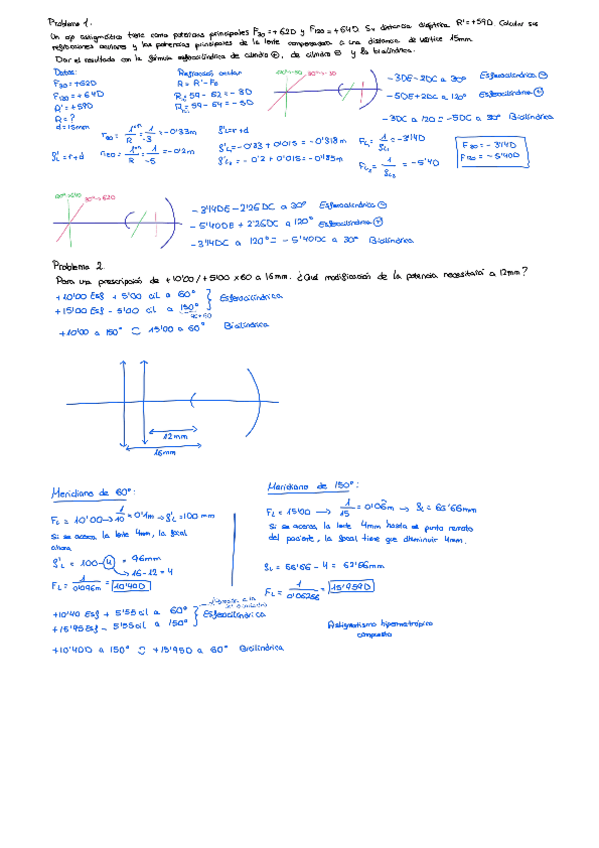 Problema 1.
Un ojo astigmático tiene como potencias principales F30=+62D y F120=+64D. Su distancia dióptrica R'=+59D. Calcular sus
refracciones oculares y las potencias principales de la lente compensadora a una distancia de vértice 15mm.
Dar el resultado con la fórmula esferocilíndrica de cilindro ⊕, de cilindro ⊖ y la bicilíndrica.
Datos:
F30=+62D
F120=+64D
R'=+59D
R=?
d=15mm
Refracción ocular
R= R'-Fe
59-62=-3D
59-64=-5D
-3DE-2DC a 30° Esferocilíndrica ⊖
-5DE+2DC a 120° Esferocilíndrica ⊕
-3DC a 120 = -5DC a 30° Bicilíndrica
1/R = 1/-3 =-0'33m
1/R = 1/-5 =-0'2m
=r+d
=r+d
=-0'33+0'015=-0'318m
=-0'2+0'015=-0'185m
=-3'14D
=-5'40
F30=-3'14D
F120=-5'40D
-3'14DE-2'26DC a 30° Esferocilíndrica ⊖
-5'40DE+2'26DC a 120° Esferocilíndrica ⊕
-3'14DC a 120°= -5'40DC a 30° Bicilíndrica
Problema 2.
Para una prescripción de +10'00/+5'00 x 60 a 16mm. ¿Qué modificación de la potencia necesitará a 12mm?
+10'00 Esf + 5'00 cil a 60°
+15'00 Esf - 5'00 cil a 150°
Esferocilíndrica
90+60
+10'00 a 150° 15'00 a 60° Bicilíndrica
12mm
16mm
Meridiano de 60°:
=10'00 → 1/10 =0'1m → =100 mm
Si se acerca la lente 4mm, la focal
ahora
= 100-4 = 96mm
16-12=4
= 1/0'096m = 10'40D
Meridiano de 150°:
=15'00 → 1/15 =0'06m → =66'66mm
Si se acerca la lente 4mm hasta el punto remoto
del paciente, la focal tiene que disminuir 4mm.
=66'66-4= 62'66mm
= 1/0'06266 = 15'959D
+10'40 Esf + 5'55 cil a 60°
+15'95 Esf - 5'55 cil a 150°
Esferocilíndrica
+10'40D a 150° +15'95D a 60° Bicilíndrica
Astigmatismo hipermetrópico
compuesto